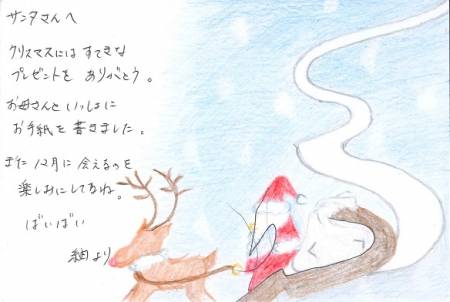 サンタさんへ
クリスマスには すてきな
プレゼントを ありがとう。
お母さんと いっしょに
お手紙を 書きました。
また 12月に 会えるのを
楽しみにしてるね。
ばいばい
より